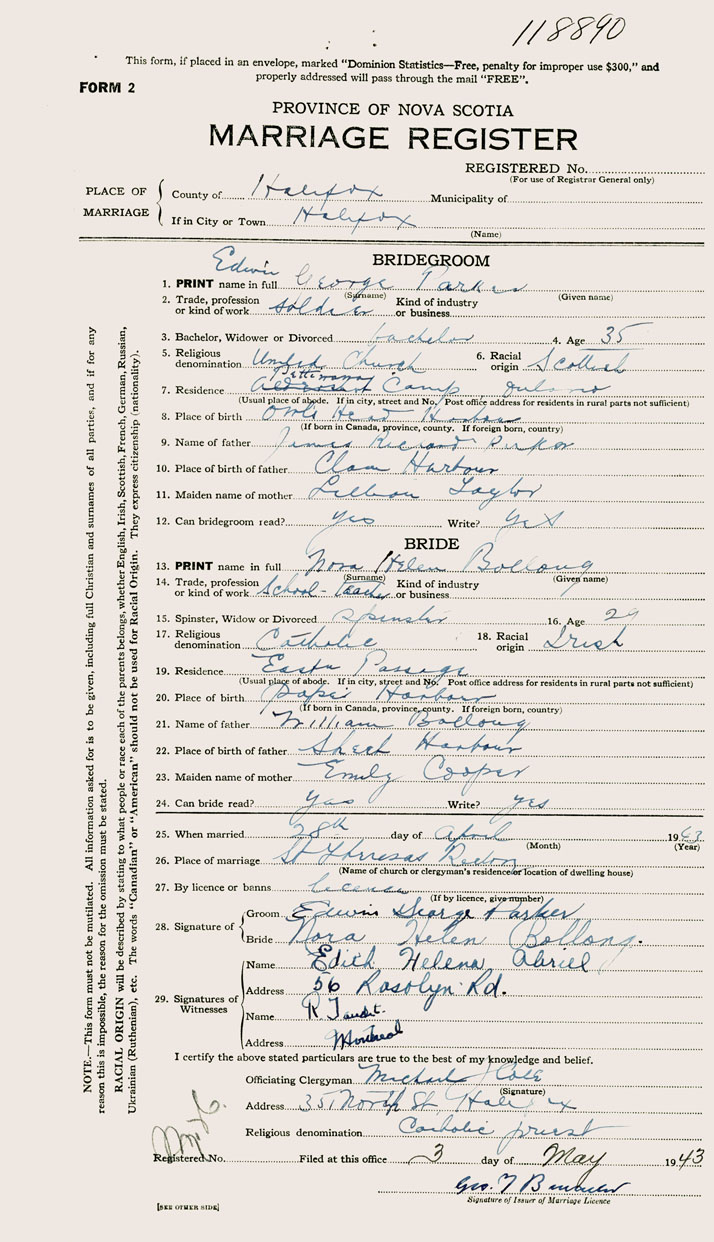 118890
This form, if placed in an envelope, marked "Dominion Statistics—Free, penalty for improper use $300," and
properly addressed will pass through the mail "FREE".
FORM 2
PROVINCE OF NOVA SCOTIA
MARRIAGE REGISTER
REGISTERED No.
(For use of Registrar General only)
PLACE OF MARRIAGE
County of Halifax Municipality of
If in City or Town Halifax
(Name)
BRIDEGROOM
1. PRINT name in full Edwin George Parker
(Surname) (Given name)
2. Trade, profession or kind of work soldier Kind of industry or business
3. Bachelor, Widower or Divorced bachelor 4. Age 35
5. Religious denomination United Church 6. Racial origin Scottish
7. Residence Petawawa Camp
(Usual place of abode. If in city, street and No. Post office address for residents in rural parts not sufficient)
8. Place of birth Owls Head Harbour
(If born in Canada, province, county. If foreign born, country)
9. Name of father James Richard Parker
10. Place of birth of father Clam Harbour
11. Maiden name of mother Taylor
12. Can bridegroom read? yes Write? yes
BRIDE
13. PRINT name in full Nora Helen Bollong
(Surname) (Given name)
14. Trade, profession or kind of work School-teacher Kind of industry or business
15. Spinster, Widow or Divorced Spinster 16. Age 29
17. Religious denomination Catholic 18. Racial origin Irish
19. Residence Passage
(Usual place of abode. If in city, street and No. Post office address for residents in rural parts not sufficient)
20. Place of birth Harbour
(If born in Canada, province, county. If foreign born, country)
21. Name of father William Bollong
22. Place of birth of father Harbour
23. Maiden name of mother Emily Cooper
24. Can bride read? yes Write? yes
25. When married 28th day of April 1943
(Month) (Year)
26. Place of marriage St Theresas
(Name of church or clergyman's residence or location of dwelling house)
27. By licence or banns license
(If by licence, give number)
28. Signature of
Groom Edwin George Parker
Bride Nora Helen Bollong.
29. Signatures of Witnesses
Name Edith Helena Abriel
Address 56 Rosolyn Rd.
Name R
Address Montreal
I certify the above stated particulars are true to the best of my knowledge and belief.
Officiating Clergyman Michael
(Signature)
Address 351 North St Halifax
Religious denomination Catholic priest
Registered No. Filed at this office 3 day of May 1943
Geo. T
Signature of Issuer of Marriage Licence
[SEE OTHER SIDE]
NOTE.—This form must not be mutilated. All information asked for is to be given, including full Christian and surnames of all parties, and if for any
reason this is impossible, the reason for the omission must be stated.
RACIAL ORIGIN will be described by stating to what people or race each of the parents belongs, whether English, Irish, Scottish, French, German, Russian,
Ukrainian (Ruthenian), etc. The words "Canadian" or "American" should not be used for Racial Origin. They express citizenship (nationality).